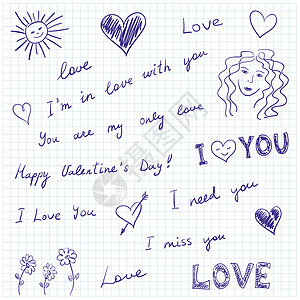 Love
love
I'm in love with you
You are my only love
I YOU
Happy Valentine's Day!
I need you
I Love You
I miss you
Love
LOVE